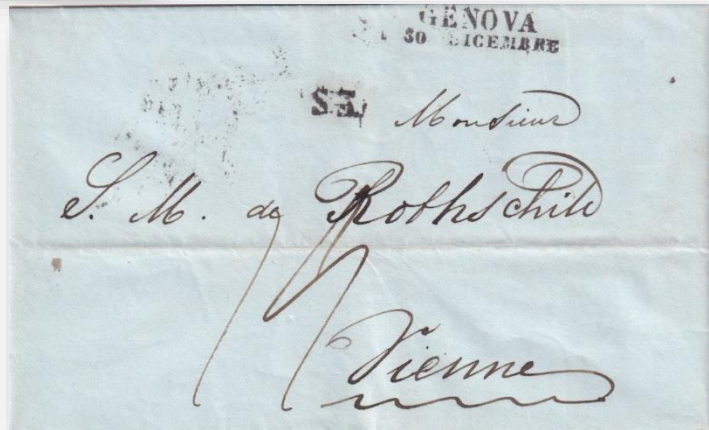 GENOVA
30 DICEMBRE
Monsieur
S. M. de Rothschild
Vienne